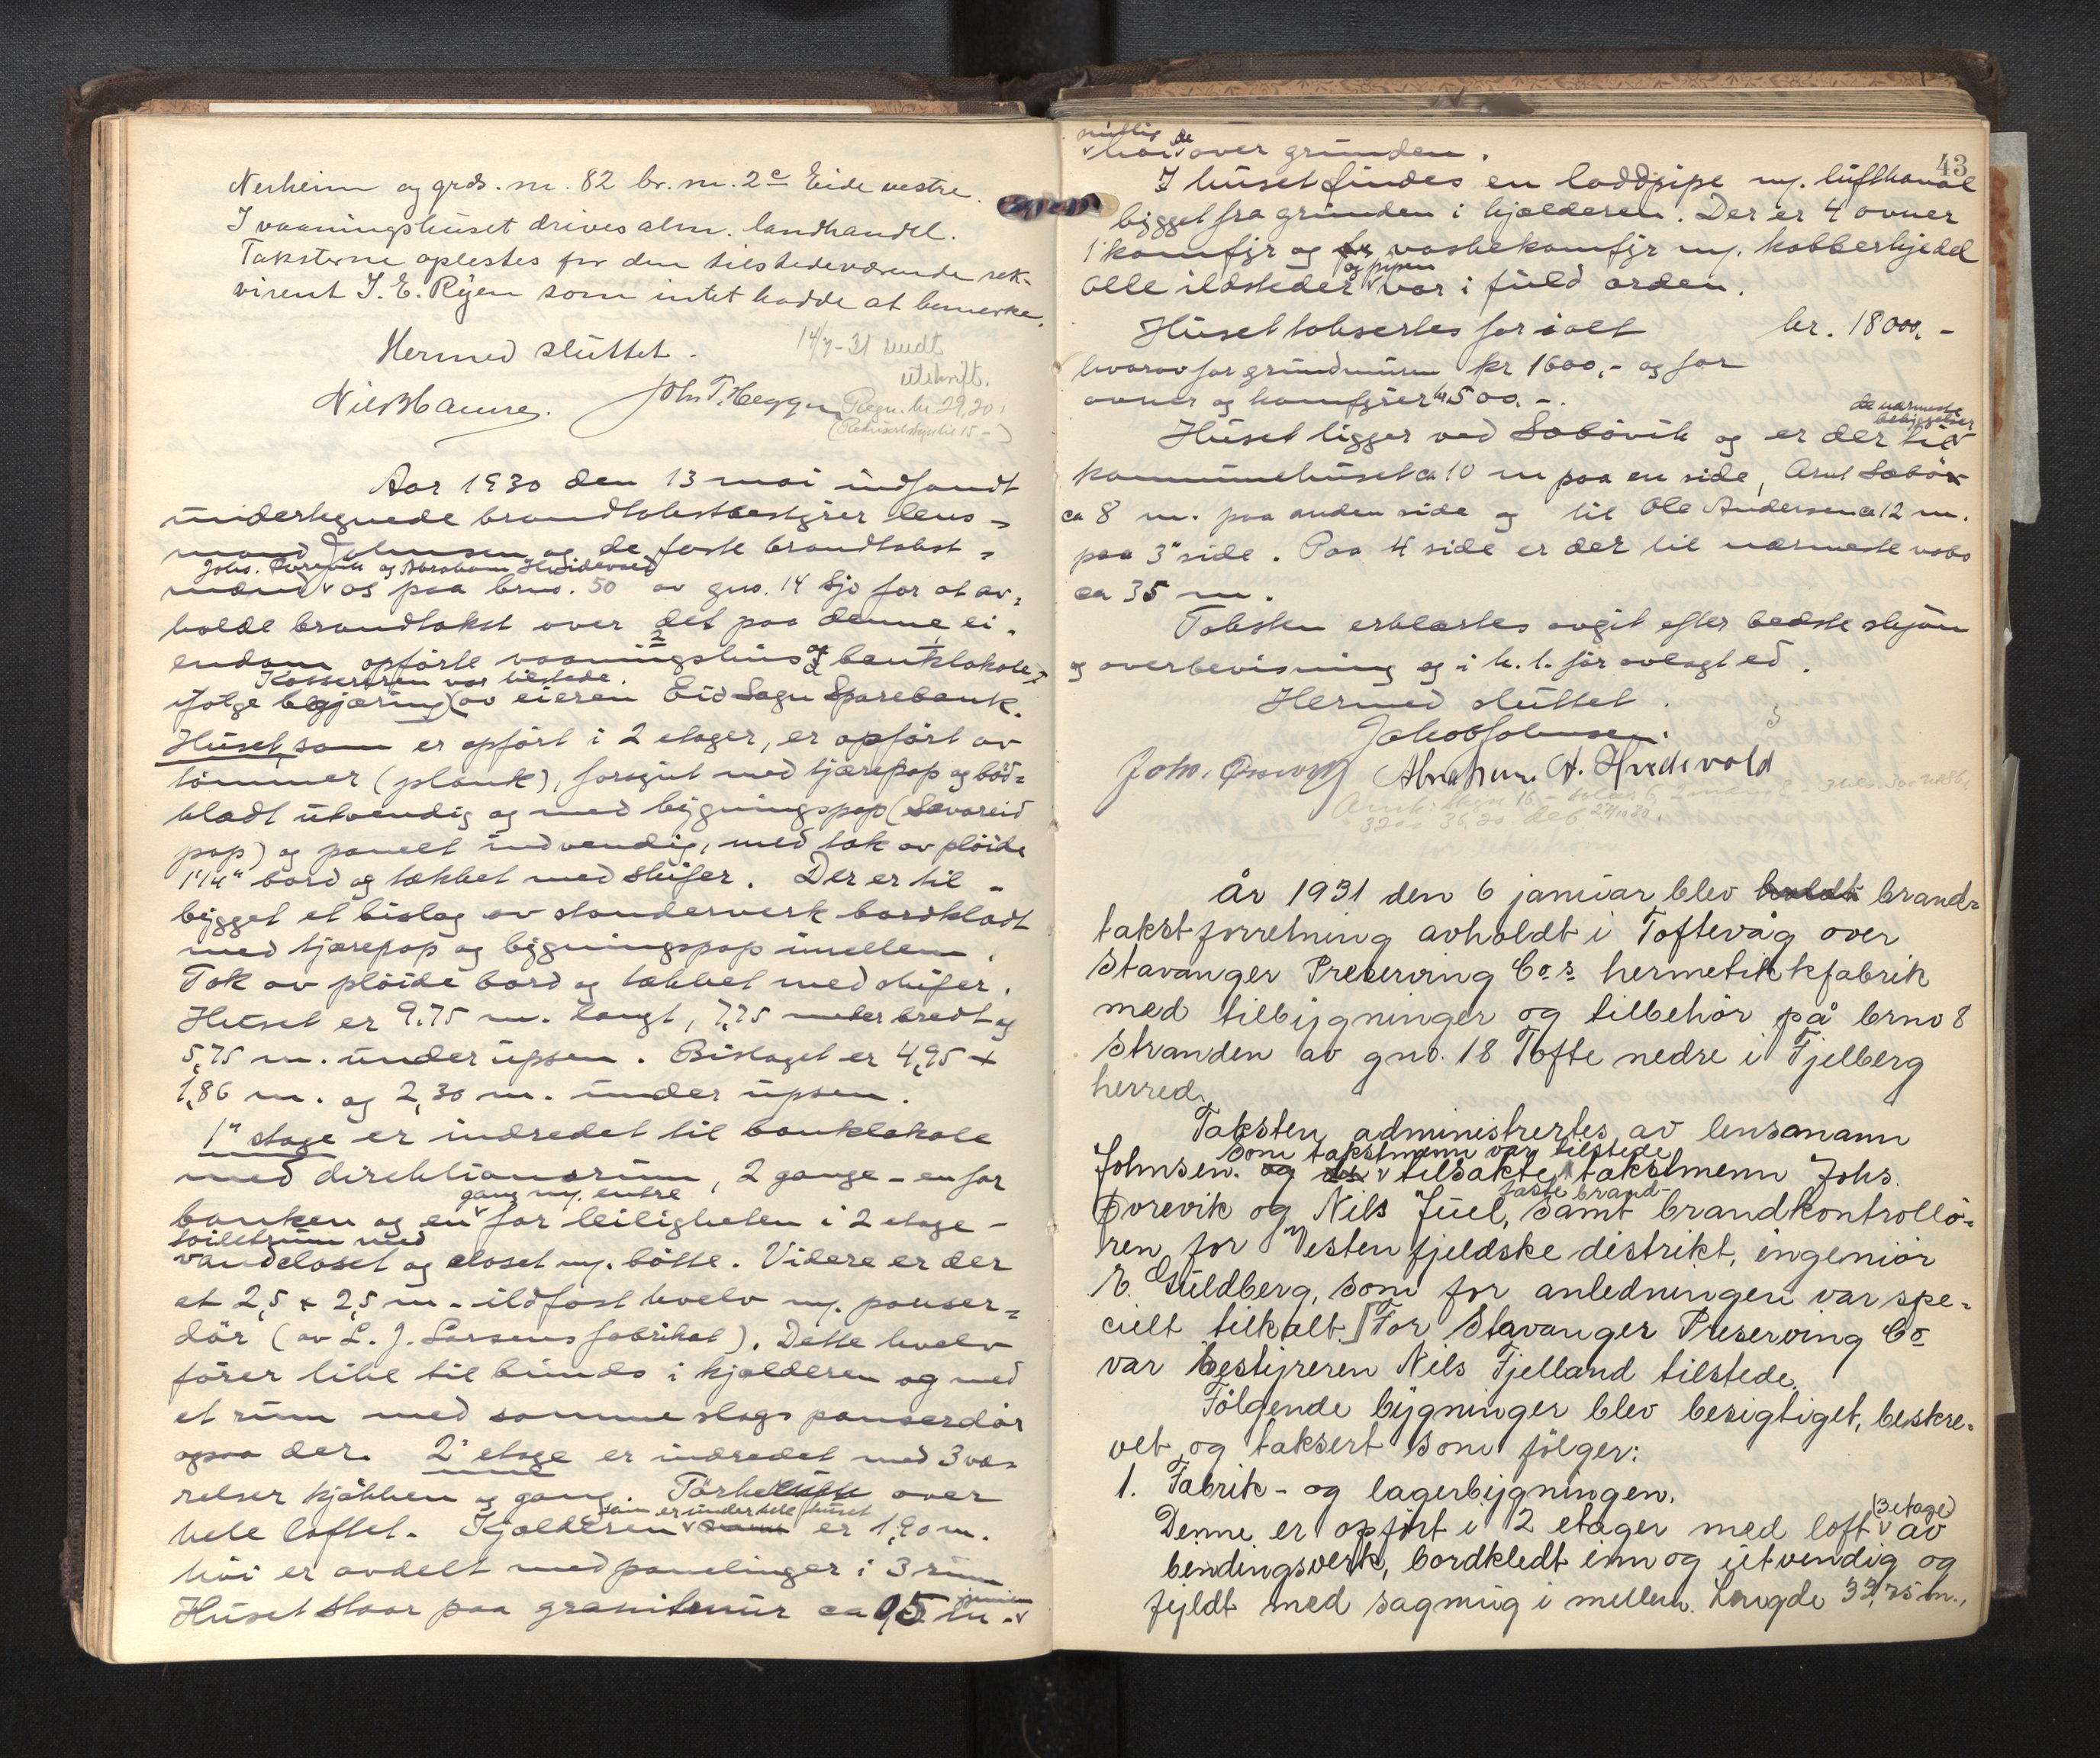 Nesheim og grds. nr. 82 br. nr. 2c Eide vestre.
I vaaningshuset drives alm. landhandel.
Taksterne oplestes for den tilstedeværende rek-
virent J. E. Ryen som intet hadde at bemerke.
Hermed sluttet.
14/7-31 sendt
utskrift.
Regn. kr 29,20
Aar 1930 den 13 mai indfandt
undertegnede brandtakstbestyrer lens-
mand Johnsen og de faste brandtakst-
Johs. Ørevik og Abraham Hvidevold
mænd os paa brno. 50 av gno. 14 Sjo for at av-
holde brandtakst over det paa denne ei-
endom opførte vaaningshus og banklokale
Kassereren var tilstede.
ifølge begjæring av eieren Eid Sogn Sparebank.
Huset, som er opført i 2 etager, er opført av
tømmer (plank), forsynt med tjærepap og bord-
kladt utvendig og med bygningspap (Sævareid
pap) og panelt indvendig, med tak av pløide
1 1/4" bord og tækket med skifer. Der er til-
bygget et bislag av standerverk bordkladt
med tjærepap og bygningspap imellem.
Tak av pløide bord og tækket med skifer.
Huset er 9,75 m. langt, 7,75 meter bredt og
5,75 m. under upsen. Bislaget er 4,95 x
1,86 m. og 2,30 m. under upsen.
1" etage er indredet til banklokale
med direktionsrum, 2 gange - en for
gang m/. entre
banken og en for leiligheten i 2 etage -
toiletrum med
vandcloset og closet m/. bøtte. Videre er der
et 2,5 x 2,5 m. ildfast hvelv m/. panser-
dør (av L. J. Larsens fabrikat). Dette hvelv
fører like til bunds i kjælderen og med
et rum med samme slags panserdør
ogsaa der. 2' etage er indredet med 3 væ-
relser kjøkken og gang. Tørkeloft over
som er under hele huset
hele loftet. Kjælderen er 1,90 m.
høi er avdelt med panelinger i 3 rum
Huset staar paa granitmur ca 0,5 m.
43
høide over grunden.
I huset findes en loddpipe m/. luftkanal
bygget fra grunden i kjælderen. Der er 4 ovner
1 komfyr og vaskekomfyr m/. kobberkjedel
og pipen
alle ildsteder var i fuld orden.
Huset takseres for ialt kr. 18000,-
hvorav for grundmuren kr 1600,- og for
ovner og komfyrer kr 500,-.
de nærmeste
bebyggelser
Huset ligger ved Sæbøvik og er der til
kommunehuset ca 10 m paa en side, Arnt Sæbø
ca 8 m. paa anden side og til Ole Andersen ca 12 m.
paa 3" side. Paa 4 side er der til nærmeste nabo
ca 35 m.
Taksten erklærtes avgit efter bedste skjøn
og overbevisning og i h. t. før avlagt ed.
Hermed sluttet.
Jakob Johnsen.
Johs. Ørevik Abraham A. Hvidevold
år 1931 den 6 januar blev holdt brand-
takstforretning avholdt i Toftevåg over
Stavanger Preserving Co.s hermetikkfabrik
med tilbygninger og tilbehør på brno 8
Stranden av gno. 18 Tofte nedre i Fjelberg
herred.
Taksten administrertes av lensmann
som takstmenn var tilstede
Johnsen. og tilsakte takstmenn Johs.
faste brand-
Ørevik og Nils Juel, samt brandkontrollø-
ren for Vestenfjeldske distrikt, ingeniør
E. Guldberg, som for anledningen var spe-
cielt tilkalt. For Stavanger Preserving Co
var bestyreren Nils Fjelland tilstede.
Følgende bygninger blev besigtiget, beskre-
vet og taksert som følger:
1. Fabrik- og lagerbygningen.
(3 etage)
Denne er opført i 2 etager med loft av
bindingsverk, bordkledt inn og utvendig og
fyldt med sagmug i mellem. Længde 33,75 m.,